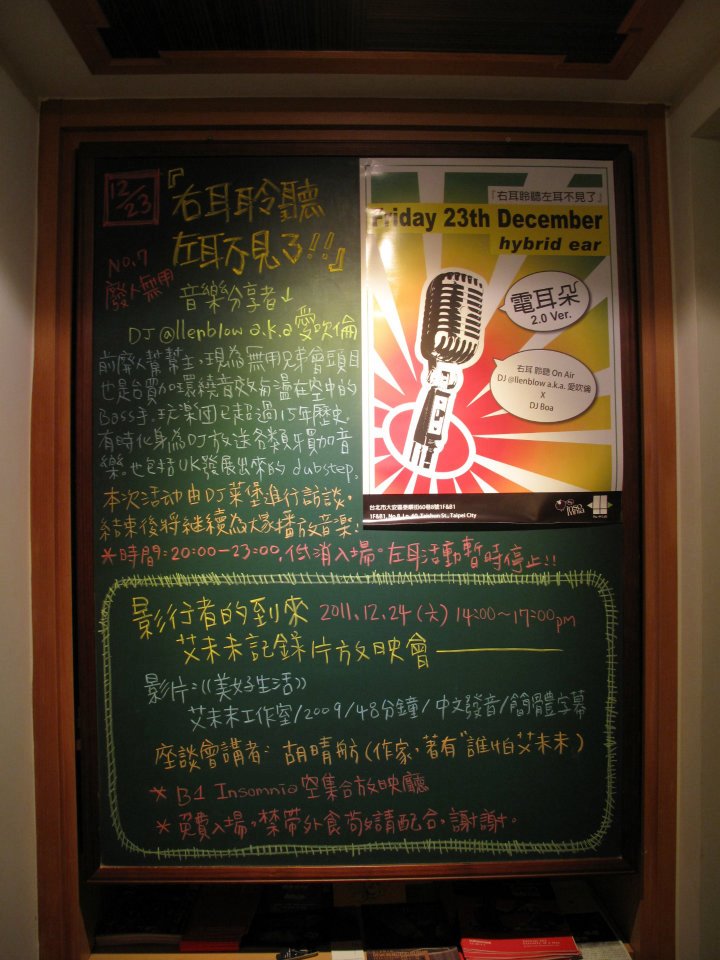 12/23
『右耳聆聽
左耳不見了!!』
No.7
廢人無用
音樂分享者↓
DJ @llenblow a.k.a 愛吹倫
前廢人幫幫主,現為無用兄弟會頭目
也是台買加環繞音效每盪在空中的
Bass手.玩樂団已超過15年歷史.
有時化身為DJ放送各類牙買加音
樂。也包括UK發展出來的 dubstep.
本次活動由DJ菜堡進行訪談,
結束後將繼續為大家播放音樂!
*時間:20:00-23:00,低消入場。左耳活動暫時停止!!
『右耳聆聽左耳不見了』
Friday 23th December
hybrid ear
電耳朵
2.0 Ver.
右耳 聆聽 On Air
DJ @llenblow a.k.a. 愛吹倫
X
DJ Boa
台北市大安區泰順街60巷8號1F&B1
1F&B1, No.8, Ln. 60, Taishun St., Taipei City
影行者的到來 2011.12.24 (六) 14:00~17:00pm
艾未未記錄片放映會
影片:《美好生活》
艾未未工作室/2009/48分鐘/中文發音/簡體字幕
座談會講者: 胡晴舫(作家,著有"誰怕艾未未)
* B1 Insomnia空集合放映廳
* 免費入場,禁帶外食 苟好請配合,謝謝。